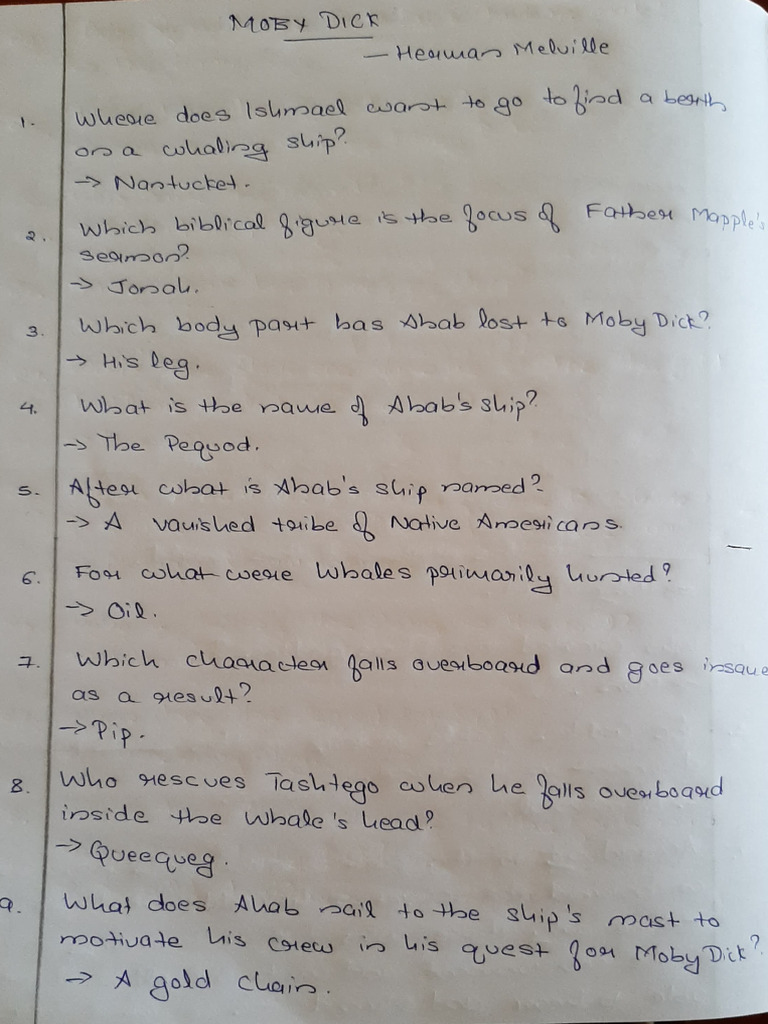 MOBY DICK
- Herman Melville
1. Where does Ishmael want to go to find a berth
on a whaling ship?
→ Nantucket.
2. Which biblical figure is the focus of Father Mapple's
sermon?
→ Jonah.
3. Which body part has Ahab lost to Moby Dick?
→ His leg.
4. What is the name of Ahab's ship?
→ The Pequod.
5. After what is Ahab's ship named?
→ A vanished tribe of Native Americans.
6. For what were Whales primarily hunted?
→ Oil.
7. Which character falls overboard and goes insane
as a result?
→ Pip.
8. Who rescues Tashtego when he falls overboard
inside the Whale's head?
→ Queequeg.
9. What does Ahab nail to the ship's mast to
motivate his crew in his quest for Moby Dick?
→ A gold chain.